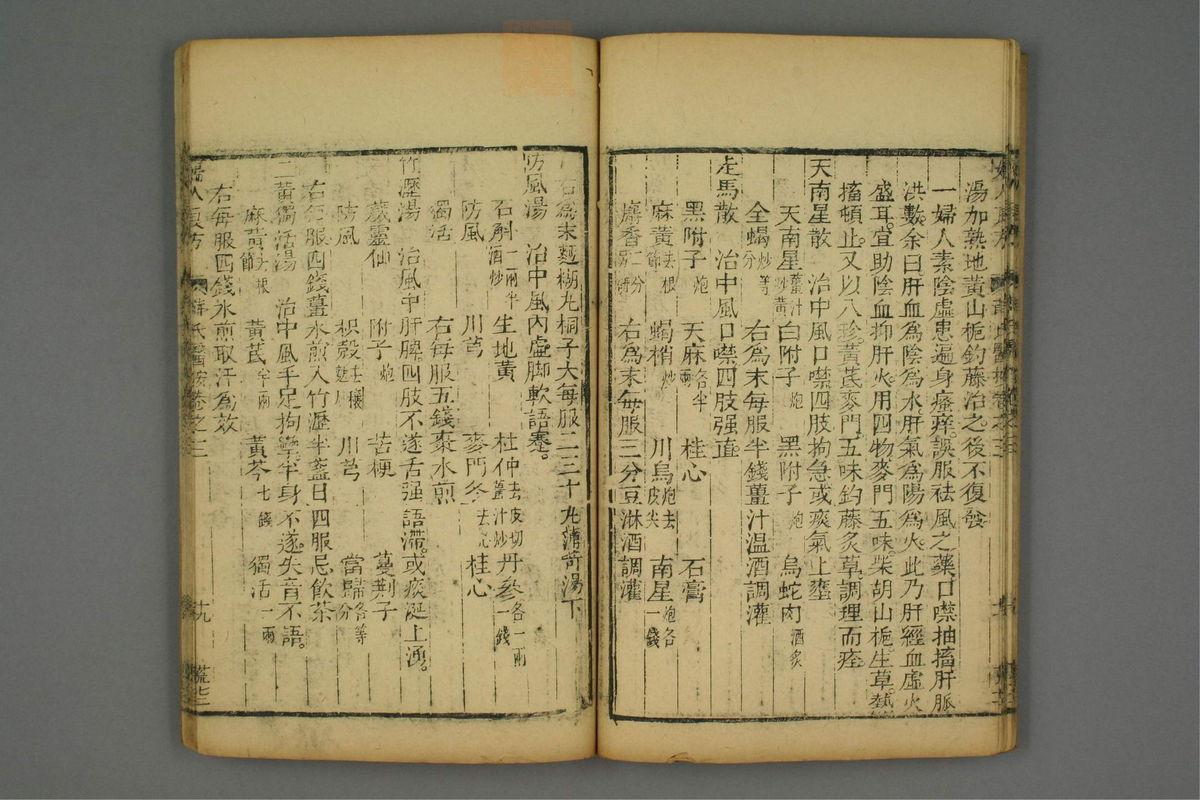 湯加熟地黃山梔鈎藤治之後不復發
一婦人素陰虛患遍身瘙痒誤服祛風之藥口噤抽搐肝脈
洪數余曰肝血爲陰爲水肝氣爲陽爲火此乃肝經血虛火
盛耳宜助陰血抑肝火用四物麥門五味柴胡山梔生草熱
搐頓止又以八珍黃芪麥門五味鈎藤炙草調理而痊
天南星散 治中風口噤四肢拘急或痰氣上壅
天南星薑汁炒黃 白附子炮 黑附子炮 烏蛇肉酒炙
全蝎炒等分 右爲末每服半錢薑汁温酒調灌
走馬散 治中風口噤四肢强直
黑附子炮 天麻各半兩 桂心 石膏
麻黃去根節 蝎梢炒 川烏炮去皮尖 南星炮各一錢
麝香二分另研 右爲末每服三分豆淋酒調灌
右爲末麪糊丸桐子大每服二三十丸薄荷湯下
防風湯 治中風內虛脚軟語蹇
石斛一兩半酒炒 生地黃 杜仲去皮切薑汁炒 丹參各一兩一錢
防風 川芎 麥門冬去心 桂心
獨活 右每服五錢棗水煎
竹瀝湯 治風中肝脾四肢不遂舌强語滯或痰涎上湧
葳靈仙 附子炮 苦梗 蔓荆子
防風 枳殼去穰麩炒 川芎 當歸各等分
右每服四錢薑水煎入竹瀝半盞日四服忌飲茶
二黃獨活湯 治中風手足拘攣半身不遂失音不語
麻黃去根節 黃芪半兩 黃芩七錢 獨活一兩
右每服四錢水煎取汗爲效
婦人良方 薛氏醫按卷之三 廿九